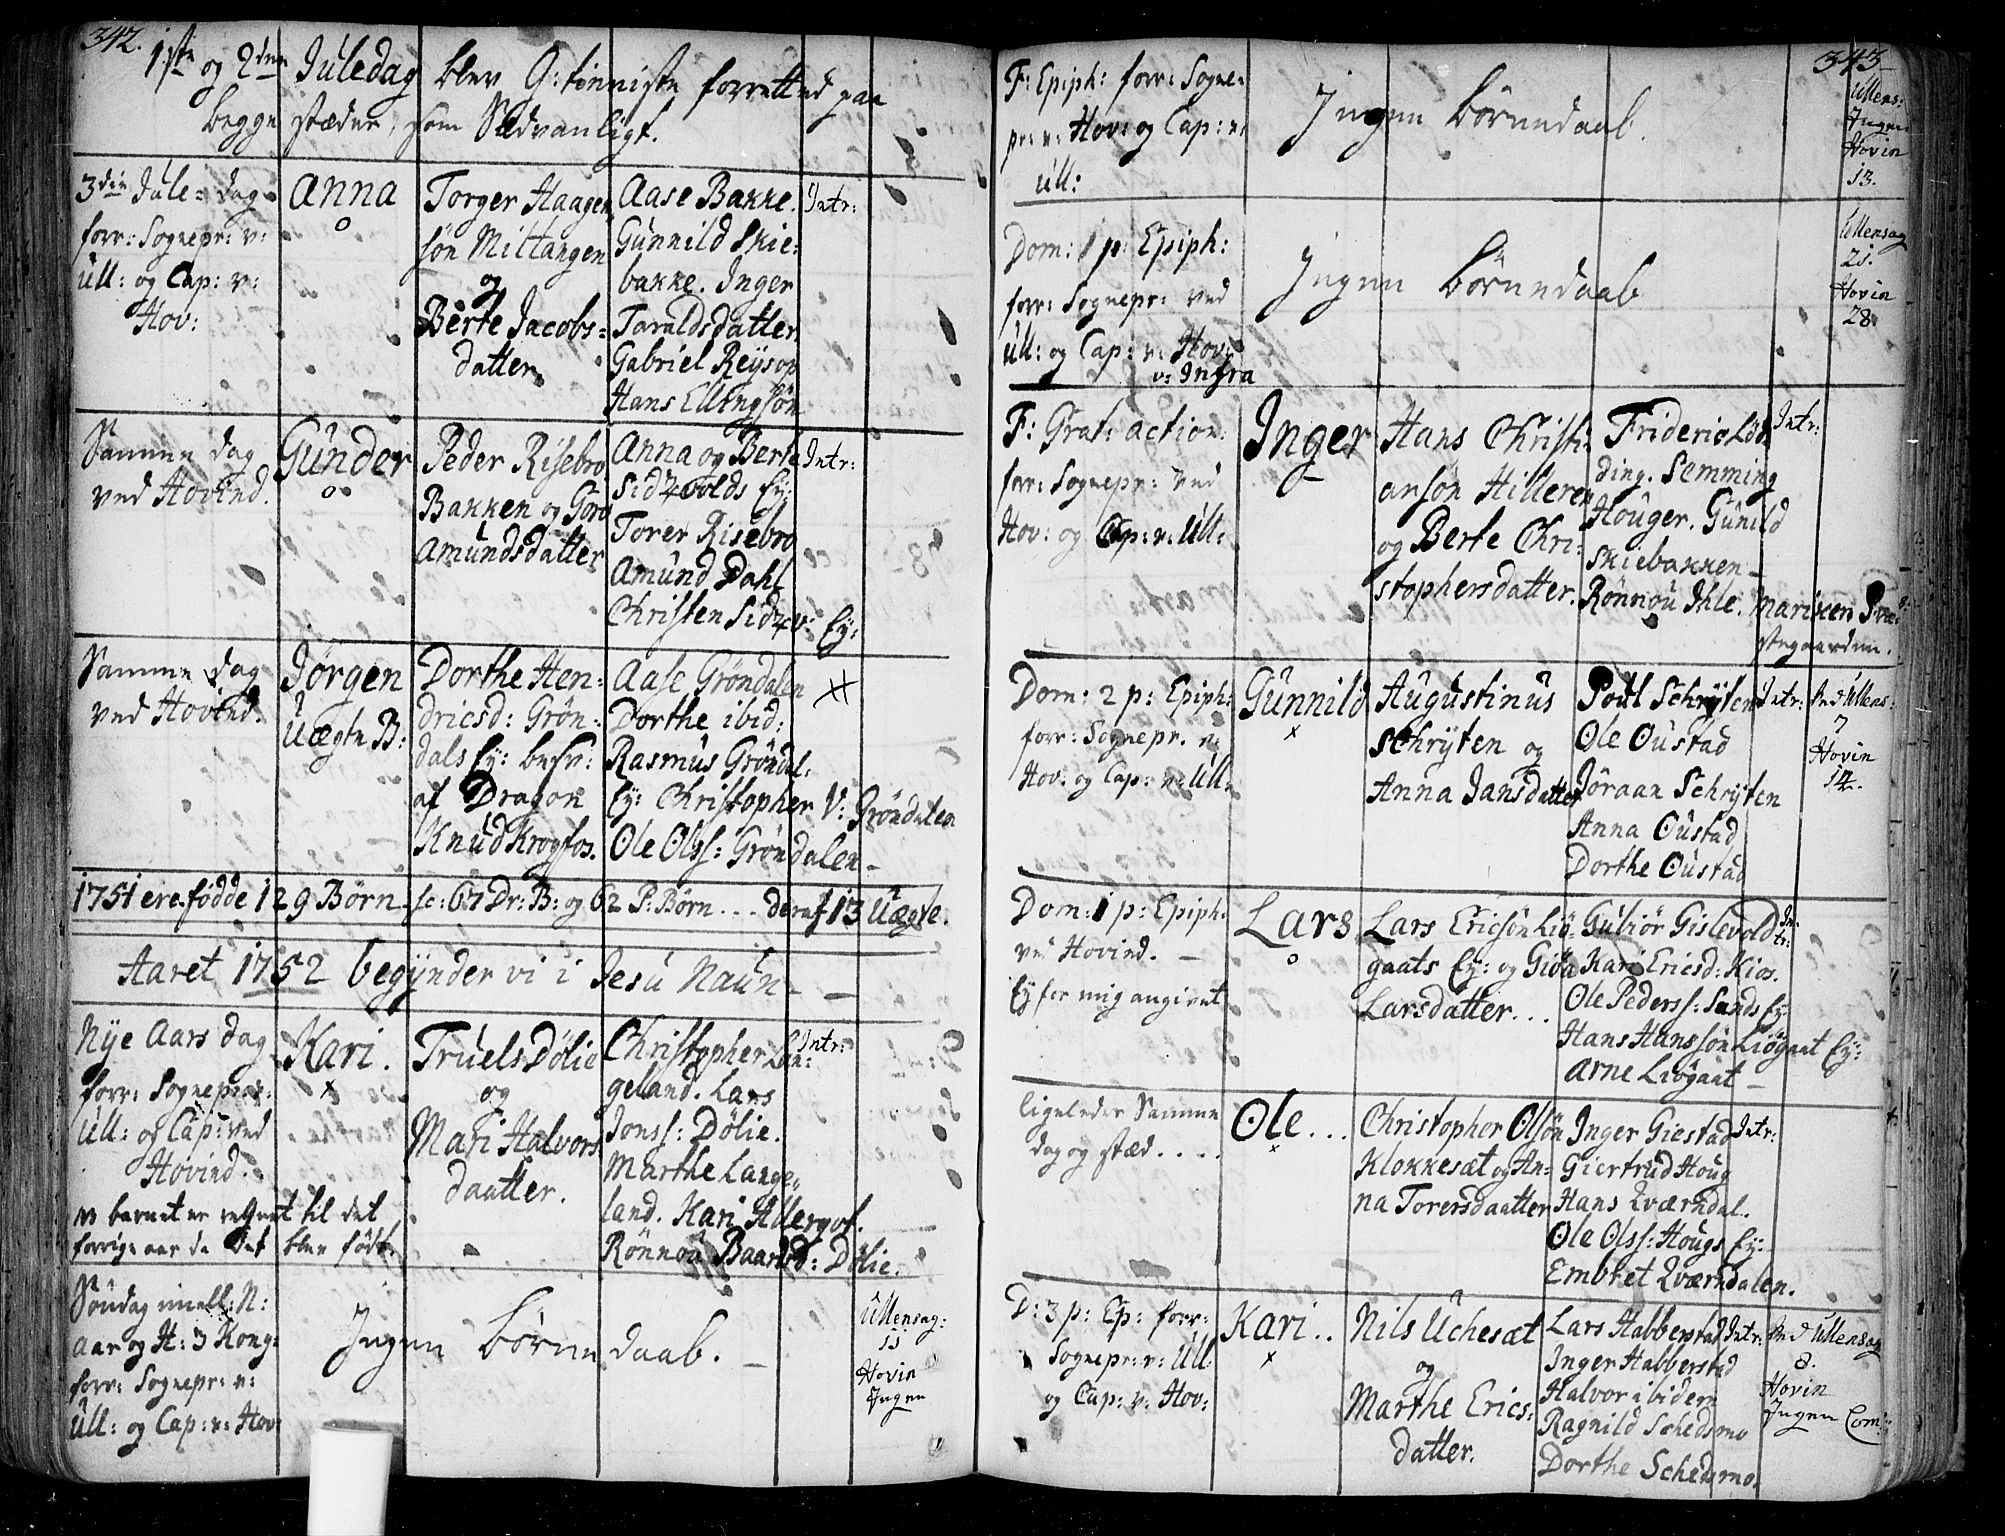 342.
1ste og 2den Juledag blev G: tienniste forrettet paa
begge stæder, som Sædvanligt.
3die Jule= dag
forr: Sognepr: v:
Ull: og Cap: v:
Hov:
Anna
Torger Haagen
søn Miltangen
og
Berte Jacobs=
datter
Aase Bakke.
Gunnild Skie-
bakke. Inger
Taraldsdatter
Gabriel Reysop
Hans Ellingsøn
Intr:
Samme dag
ved Hovind.
Gunder
Peder Risebro
Bakken og Goro
Amundsdatter
Anna og Berte
Ey:
Torer Risebro
Amund Dahl
Christen Ey:
Intr:
Samme dag
ved Hovind.
Jørgen
Uægte B:
Dorthe Hen-
dricsd: Grøn-
dals Ey: besv:
af Dragon
Knud Krogfos.
Aase Grøndalen
Dorthe ibid:
Rasmus Grøndal:
Ey: Christopher V: Grøndalen
Ole Olss: Grøndalen
1751 ere fødde 129 Børn sc: 67 Dr: B: og 62 P: Børn ... deraf 13 Uægte.
Aaret 1752 begynder vi i Jesu Naun
Nye Aars dag
forr: Sognepr:
Ull: og Cap: ved
Hovind.
barnet er regnet til det
forrige aar da det blev født.
Kari.
x
Truels Dølie
og
Mari Halvors
daatter.
Christopher Lan:
geland. Lars
Jonss: Dølie.
Marthe Lange,
land. Kari Allergot.
Rønnou Baarsd: Dølie.
Intr:
Søndag imell: N:
aar og H: 3 Kong:
forr: Sognepr: v:
Ull: og Cap: v: Hov:
Ingen børne daab.
Ullensag:
11
Hovin
Ingen
343
F: Epiph: forr: Sogne-
pr: v: Hov: og Cap: v:
Ull:
Ingen børnedaab.
Ullens:
Ingen
Hovin
13.
Dom: 1 p: Epiph:
forr: Sognepr: ved
Ull: og Cap: v: Hov:
v: Infra
Ingen børnedaab
Ullensag
21.
Hovin
28.
F: Grat: action:
forr: Sognepr: ved
Hov: og Cap: v: Ull:
Inger
Hans Christi-
ansøn Hilleren
og Berte Chri:
stophersdatter.
Frideric Lød
ding. Semming
Houger. Gunild
Skiebakken
Rønnou Ihle. Mariken Præ-
stegaarden.
Intr:
Dom: 2 p: Epiph:
forr: Sognepr. v:
Hov: og Cap: v: Ull:
Gunnild
x
Augustinus
Schryten og
Anna Jansdatter
Poul Schryten
Ole Oustad
Jøraan Schryten
Anna Oustad
Dorthe Oustad
Intr:
Ved Ullens:
7
Hovin
14.
Dom: 1 p: Epiph:
ved Hovind.
Ey for mig angivet
Lars
Lars Ericsøn Liø-
gaats Ey: og Giøa
Larsdatter...
Gubiør Gislevold
Kari Ericsd: Kios.
Ole Pederss: Sands Ey
Hans Hanssøn Liøgaat Ey:
Arne Liøgaat
In
tr:
ligeledes Samme
dag og stæd....
Ole...
x
Christopher Olsøn
Klokkesæt og An=
na Torersdaatter
Inger Giestad
Giertrud Houg
Hans Qværndal.
Ole Olss: Hougs Ey:
Embret Qværndalen.
Intr:
D: 3 p: Ep: forr:
Sognepr: v: Ull
og Cap: v: Hov:
Kari..
x
Nils Uchesæt
og
Marthe Erics:
datter.
Lars Habberstad
Inger Habberstad
Halvor ibidem
Ragnild Schedsmo
Dorthe Schedsmo.
Intr:
Ved Ullensag
8.
Hovin
Ingen Com: